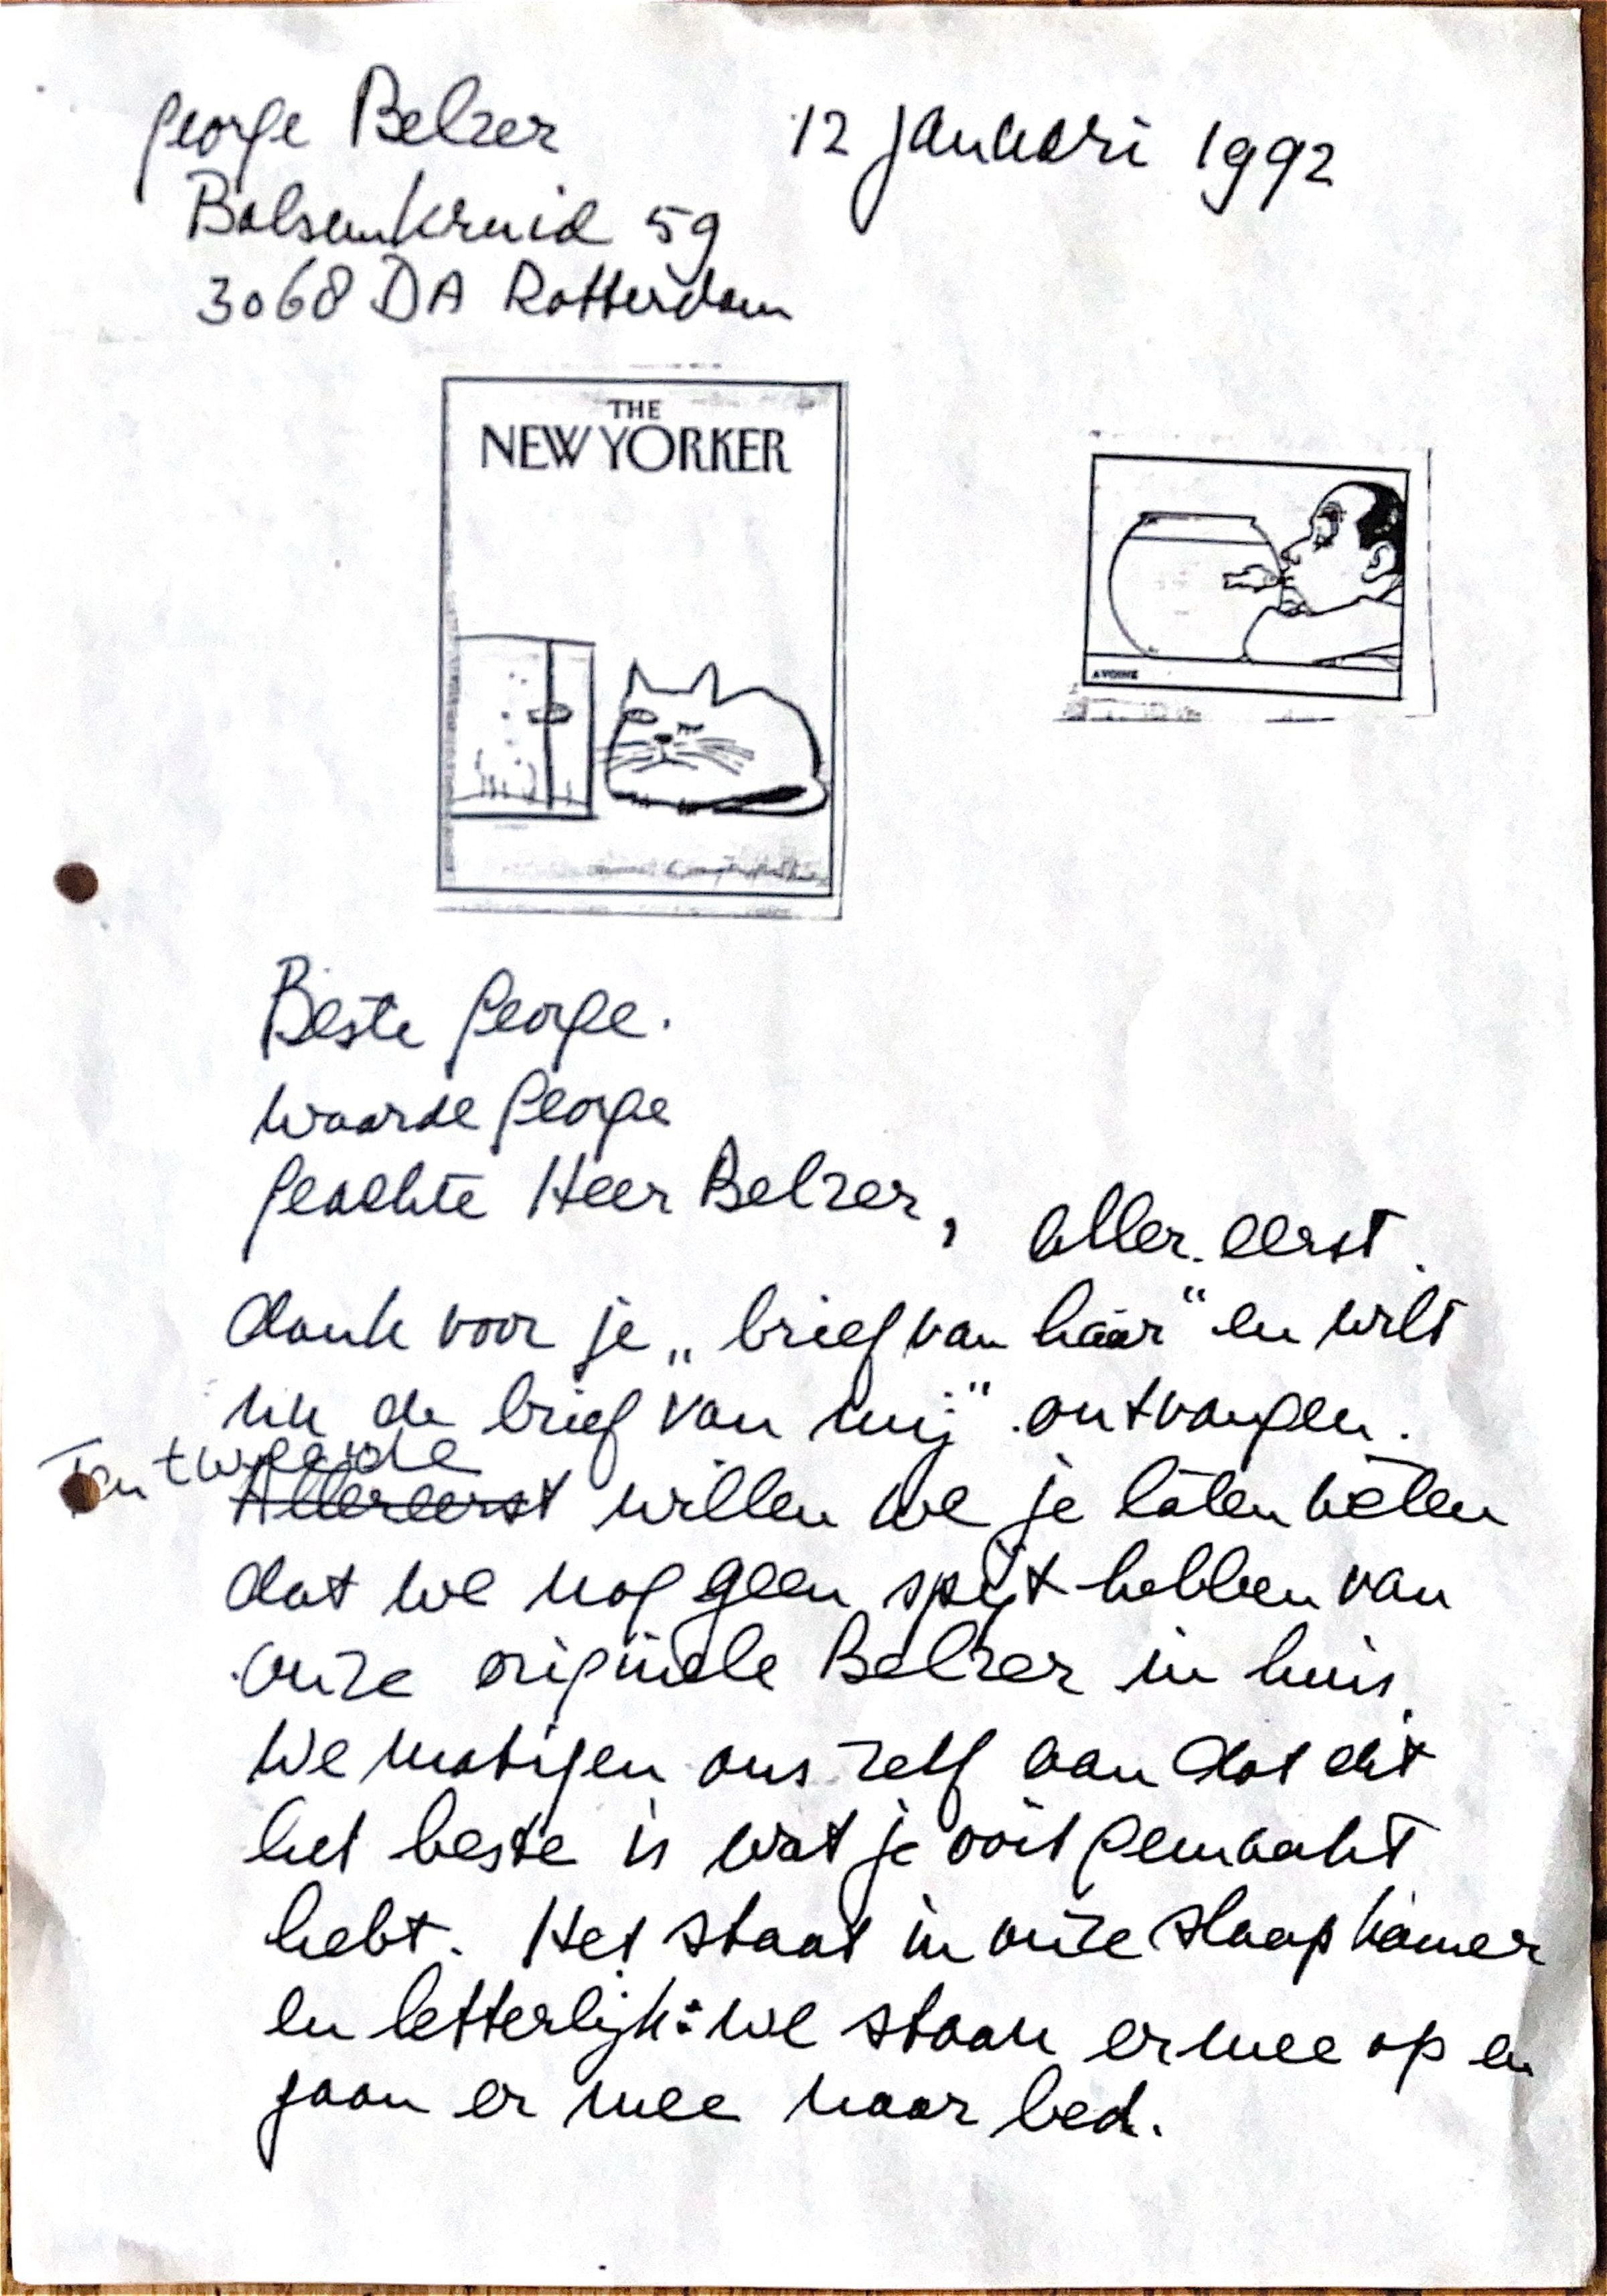 George Belzer
12 januari 1992
Balsemkruid 59
3068 DA Rotterdam
THE
NEW YORKER
AVOINE
Beste George.
Waarde George
Geachte Heer Belzer, aller eerst
dank voor je „brief van háár" en wilt
nu de brief van mij" ontvangen.
Ten tweede
Allereerst willen we je laten weten
dat we nog geen spijt hebben van
onze originele Belzer in huis.
We matigen ons zelf aan dat dit
het beste is wat je ooit gemaakt
hebt. Het staat in onze slaapkamer
en letterlijk: we staan ermee op en
gaan er mee naar bed.